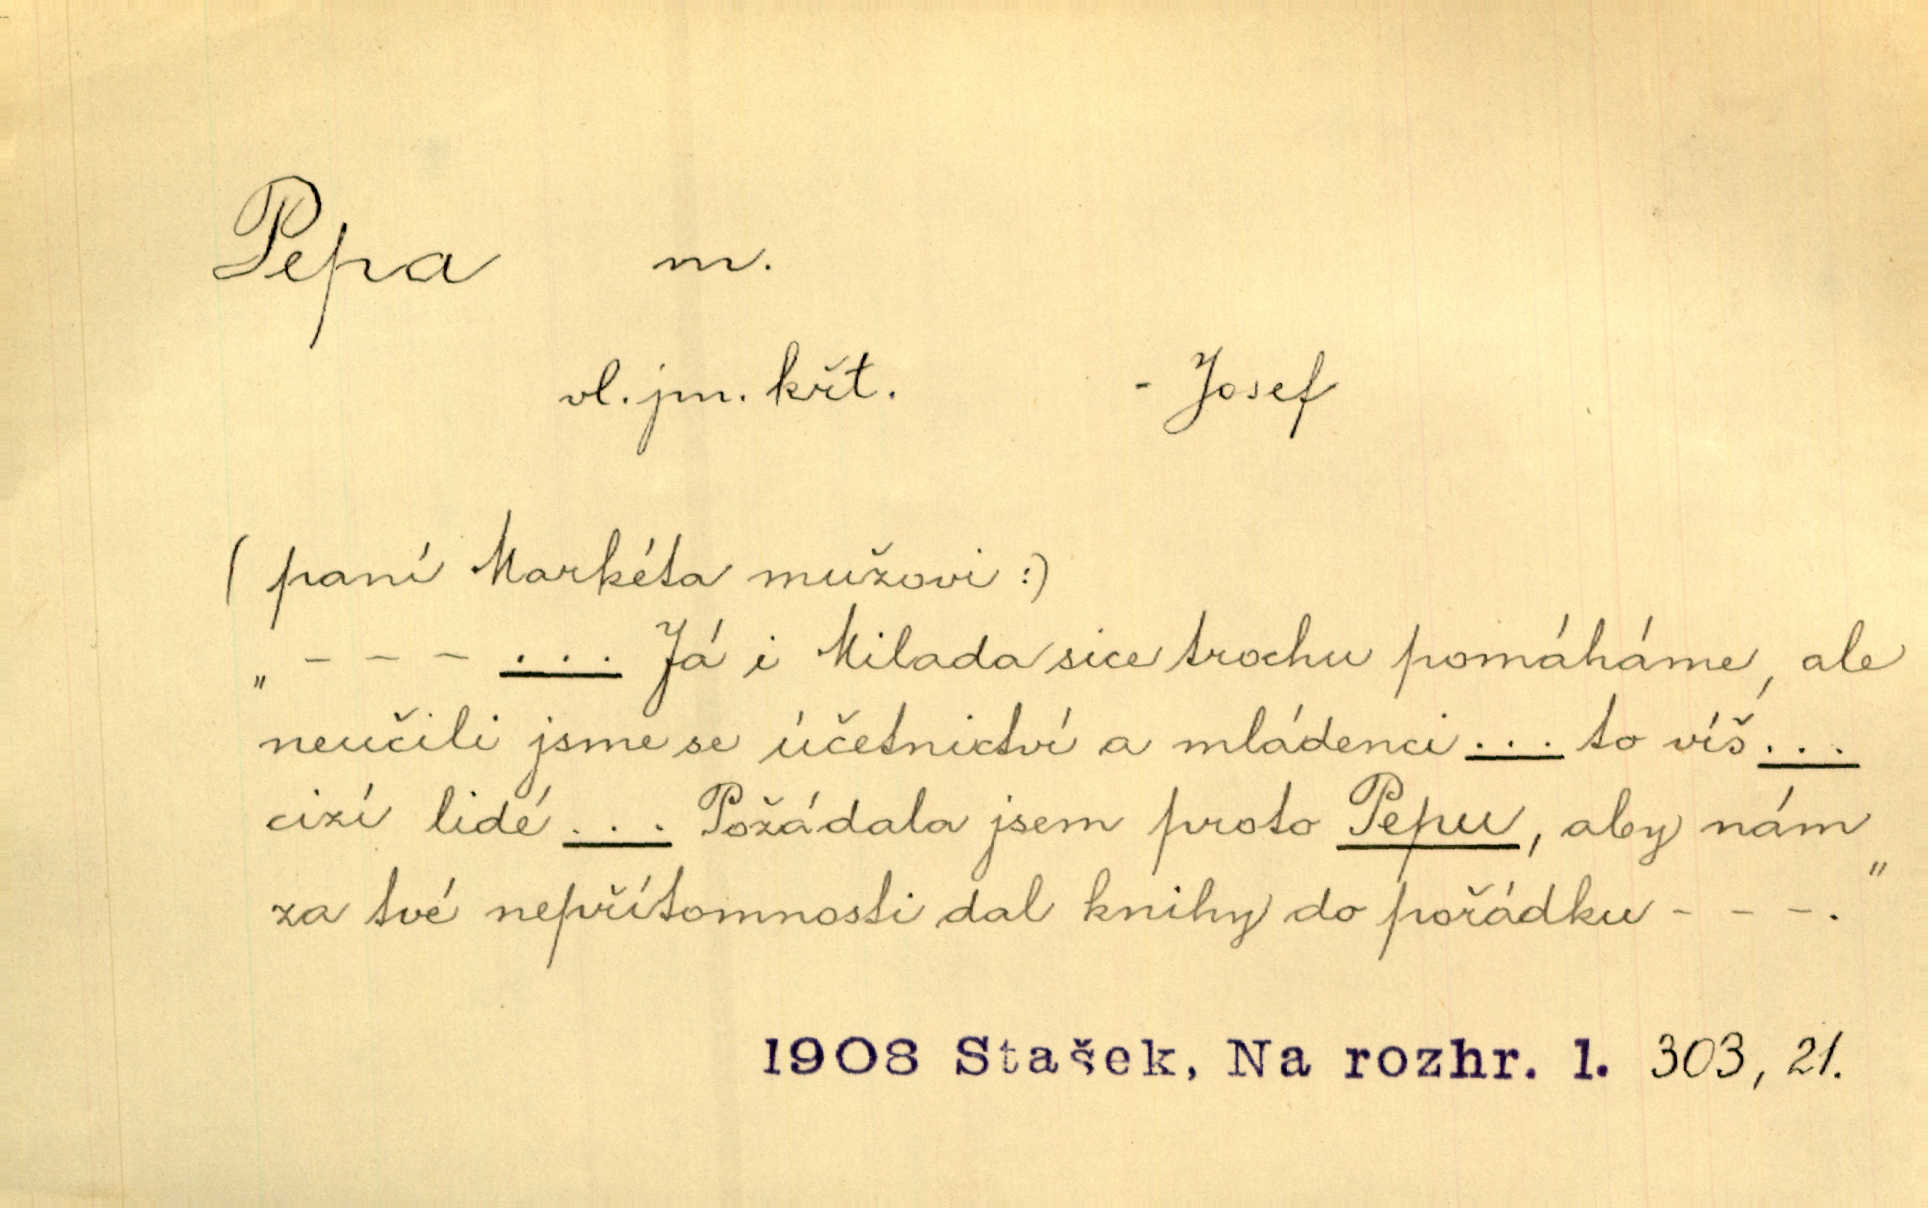 Pepa m.
vl. jm. křt. - Josef
( paní Markéta mužovi :)
„ - - - . . . Já i Milada sice trochu pomáháme, ale
neučili jsme se účetnictví a mládenci . . . to víš . . .
cizí lidé . . . Požádala jsem proto Pepu, aby nám
za tvé nepřítomnosti dal knihy do pořádku - - - .“
1908 Stašek, Na rozhr. 1. 303, 21.